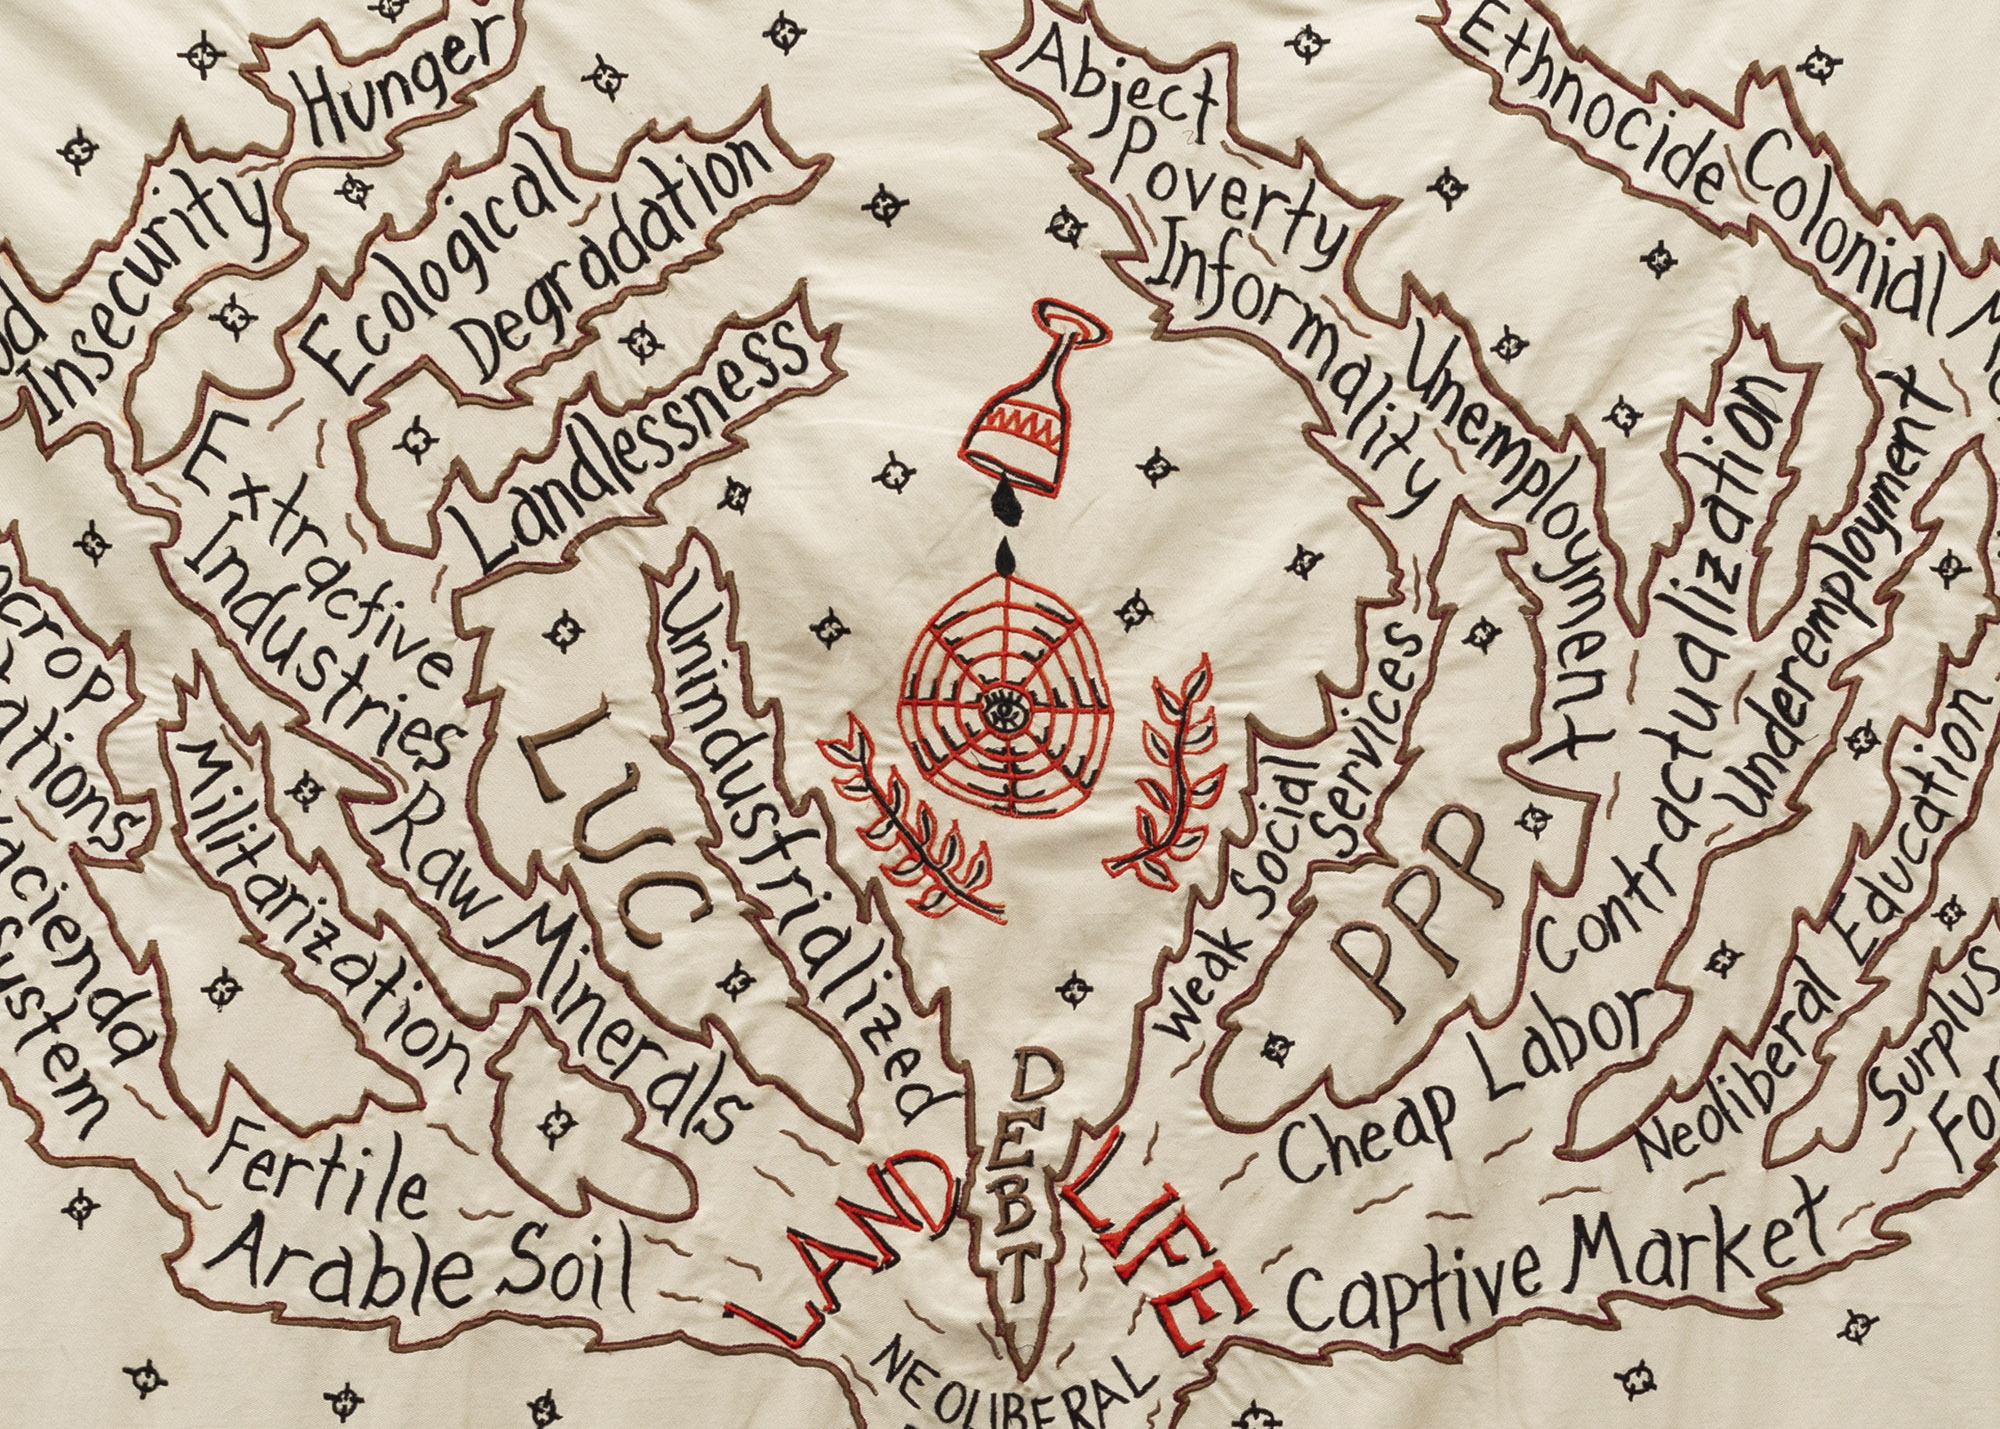 Hunger
Insecurity
Ecological
Degradation
Landlessness
Extractive
Industries
Raw Minerals
Militarization
LUC
Unindustrialized
Fertile
Arable Soil
LAND
DEBT
LIFE
NEOLIBERAL
Abject
Poverty
Informality
Unemployment
Ethnocide
Colonial
Contractualization
Underemployment
Weak Social
Services
PPP
Cheap Labor
Neoliberal Education
Surplus
Captive Market